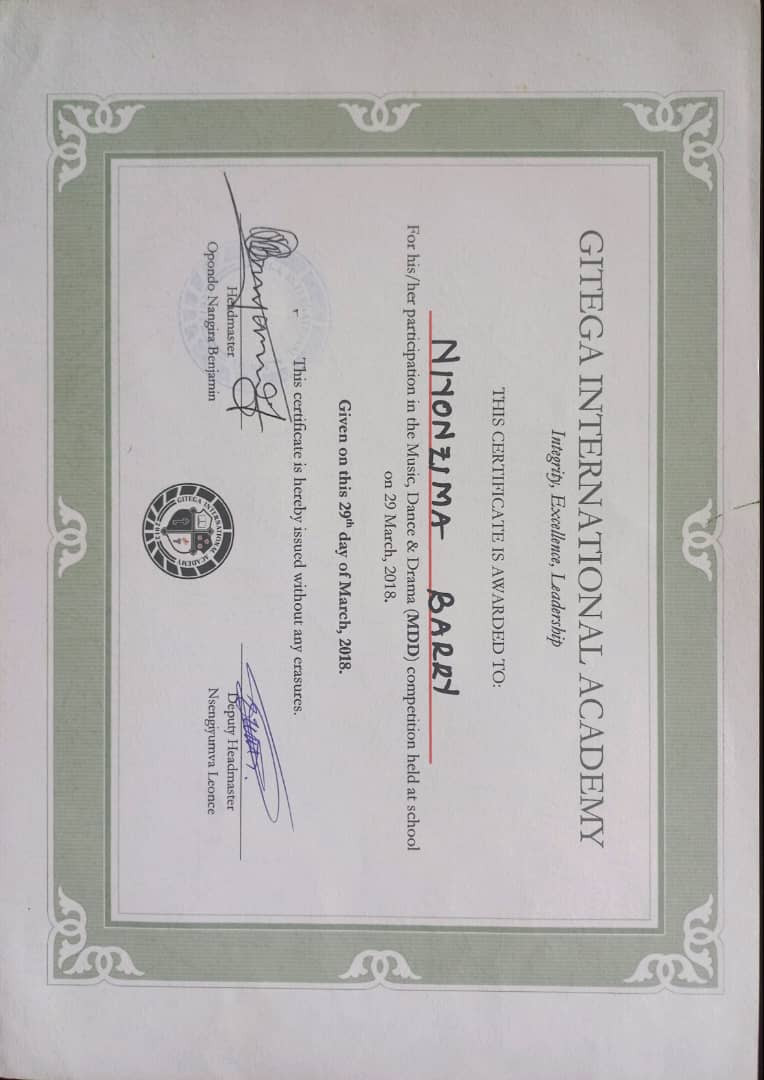 GITEGA INTERNATIONAL ACADEMY
Integrity, Excellence, Leadership
THIS CERTIFICATE IS AWARDED TO:
NIYONZIMA BARRY
For his/her participation in the Music, Dance & Drama (MDD) competition held at school
on 29 March, 2018.
Given on this 29th day of March, 2018.
This certificate is hereby issued without any erasures.
Headmaster
Opondo Nangira Benjamin
Deputy Headmaster
Nsengiyumva Leonce
GITEGA INTERNATIONAL ACADEMY
2013